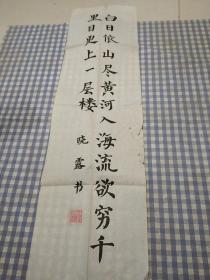 白日依山尽黄河入海流欲穷千
里目更上一层楼
晓露书